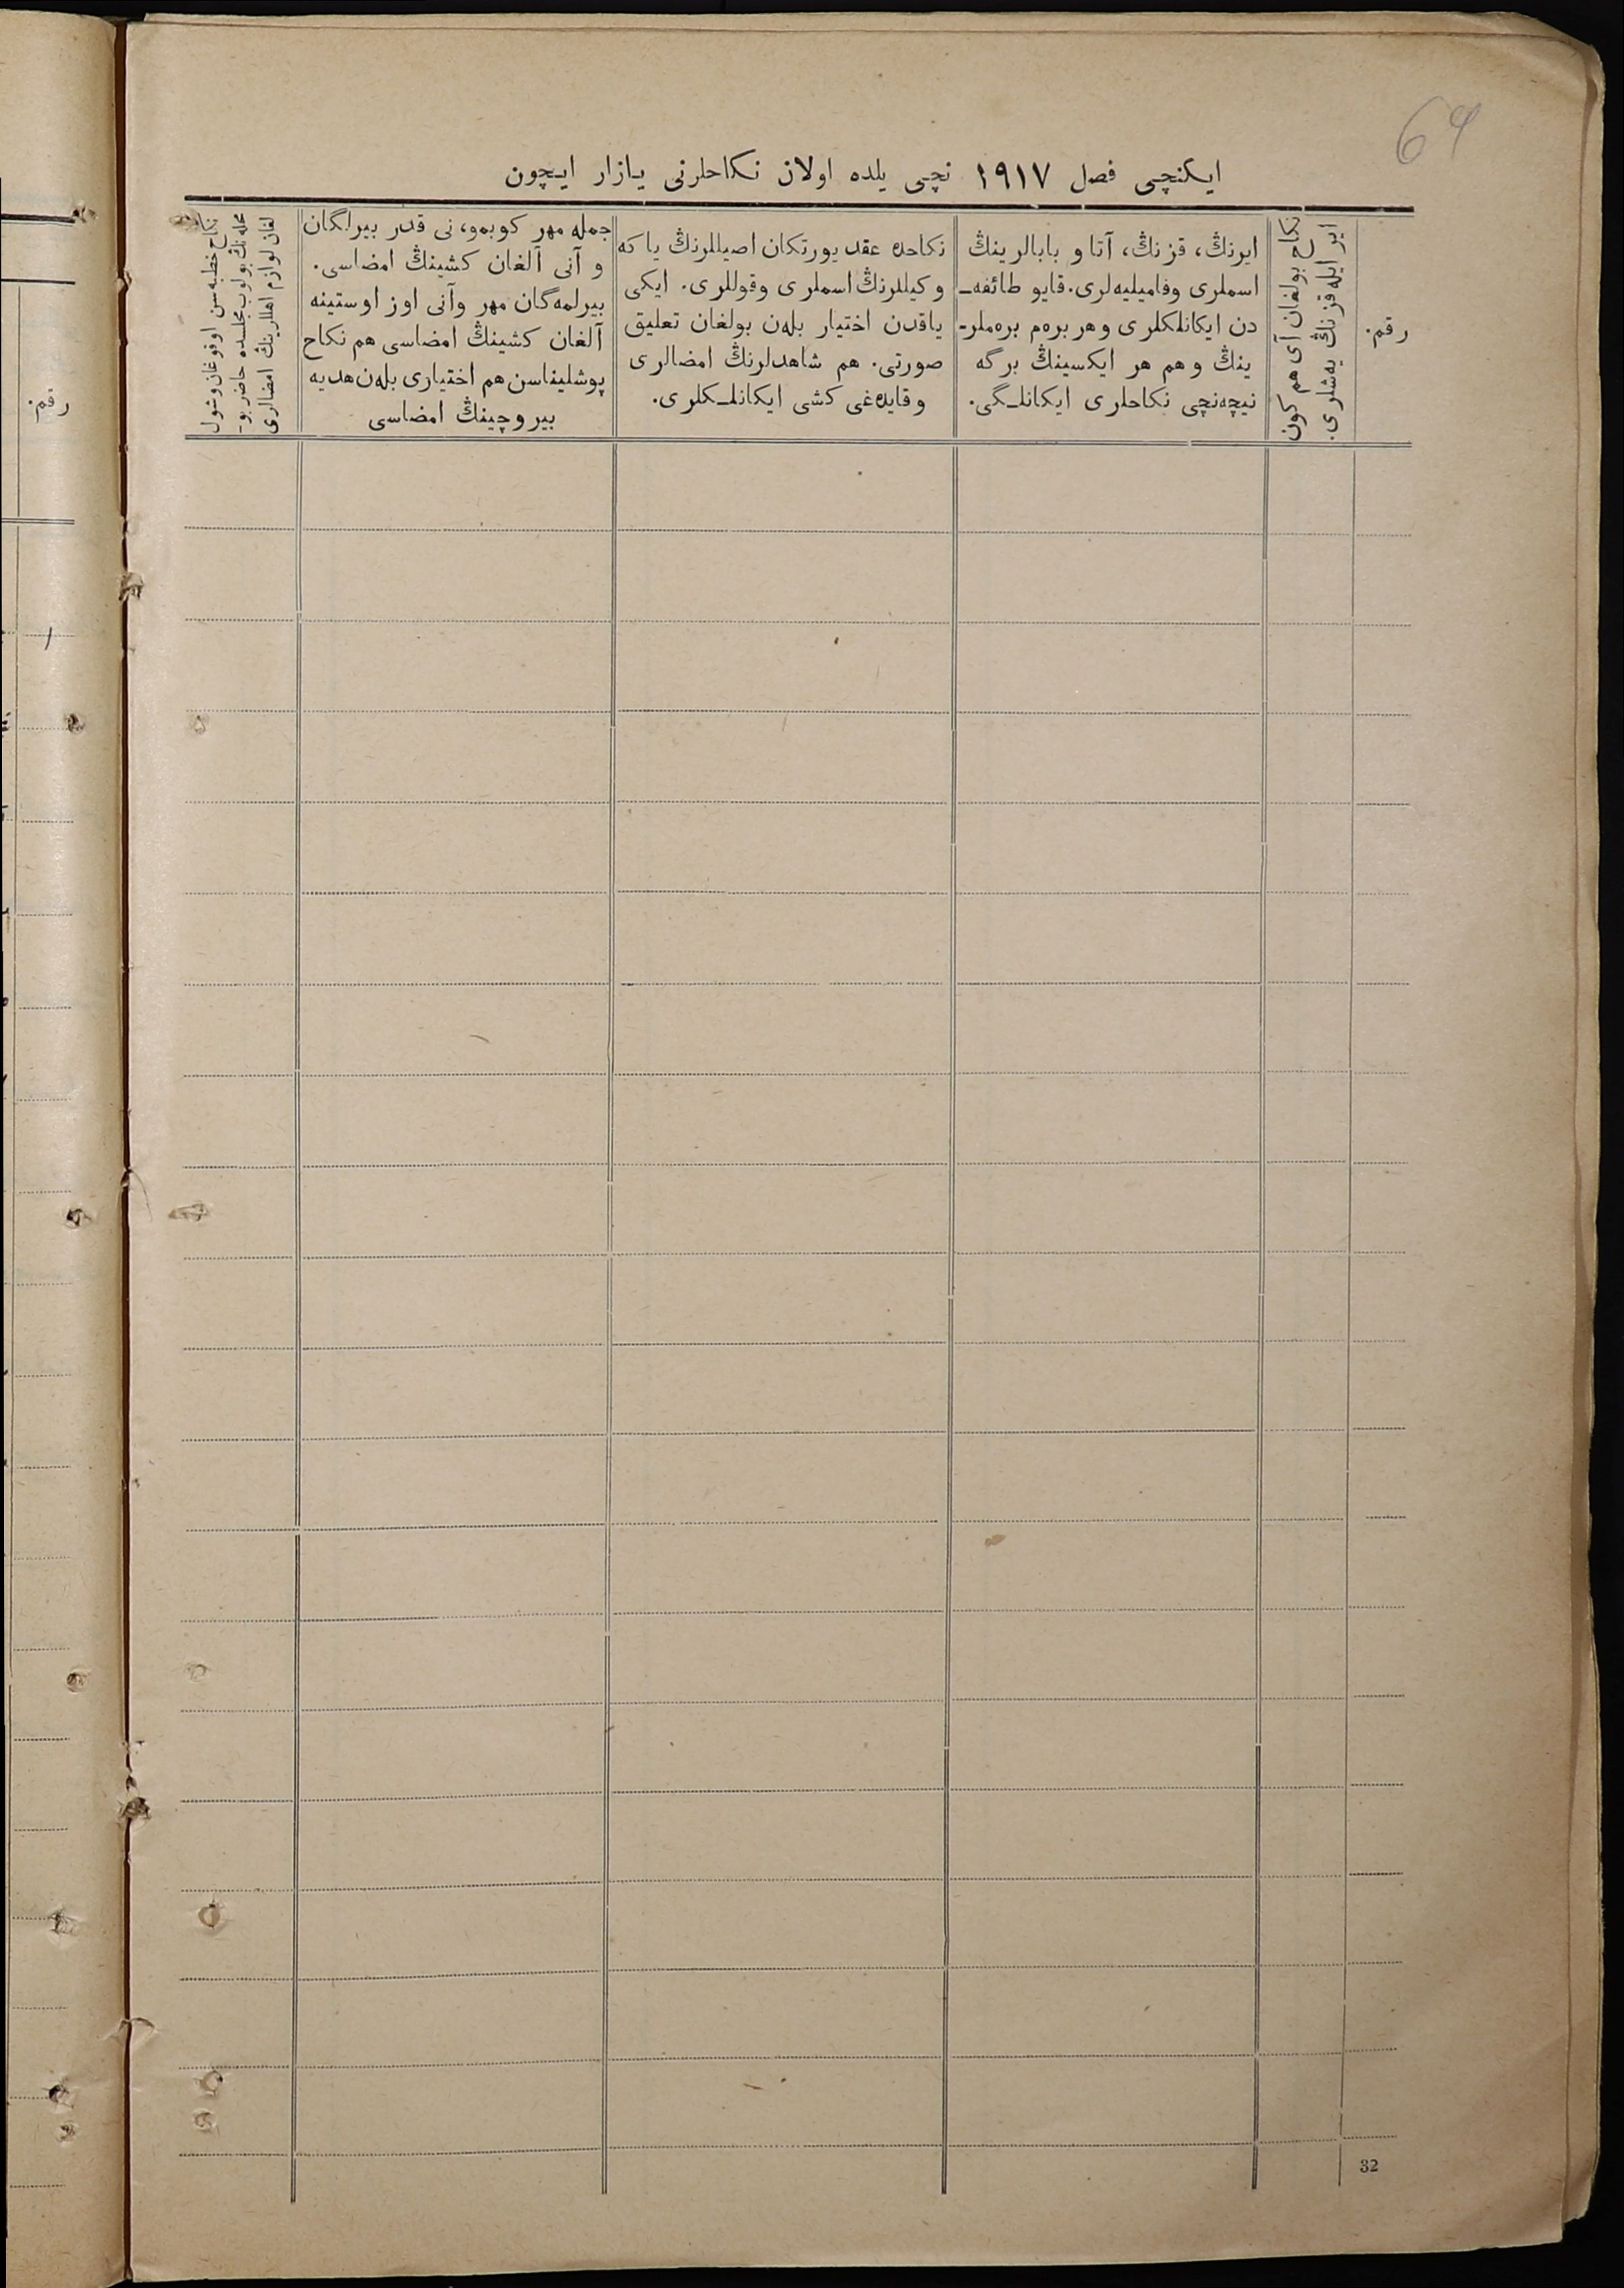 64
ایکنچی فصل ١٩١٧ نچی یلده اولان نکاحلرنی یازار ایچون
رقم.
ایر ایله قزنڭ یه‌شلری.
نکاح بولغان آی هم کون
ایرنڭ، قزنڭ، آتا و بابالرینڭ
اسملری وفامیلیه‌لری. قایو طائفه‌ـ
دن ایکانلکلری وهر بره‌م بره‌ملرـ
ینڭ وهم هر ایکسینڭ برگه
نیچه‌نچی نکاحلری ایکانلـگی.
نکاحده عقد یورتکان اصیللرنڭ یا که
وکیللرنڭ اسملری وقوللری. ایکی
یاقدن اختیار بله‌ن بولغان تعلیق
صورتی. هم شاهدلرنڭ امضالری
وقایده‌غی کشی ایکانلـکلری.
جمله مهر کوبمو، نی قدر بیرلگان
و آنی آلغان کشینڭ امضاسی.
بیرلمه‌گان مهر وآنی اوز اوستینه
آلغان کشینڭ امضاسی هم نکاح
پوشلیناسن هم اختیاری بله‌ن هدیه
بیروچینڭ امضاسی
نکاح خطبه‌سن اوقوغان وشول
محله‌نڭ بولوب مجلسده حاضر بوـ
لغان لوازم اهللارینڭ امضالری
رقم.
١
32